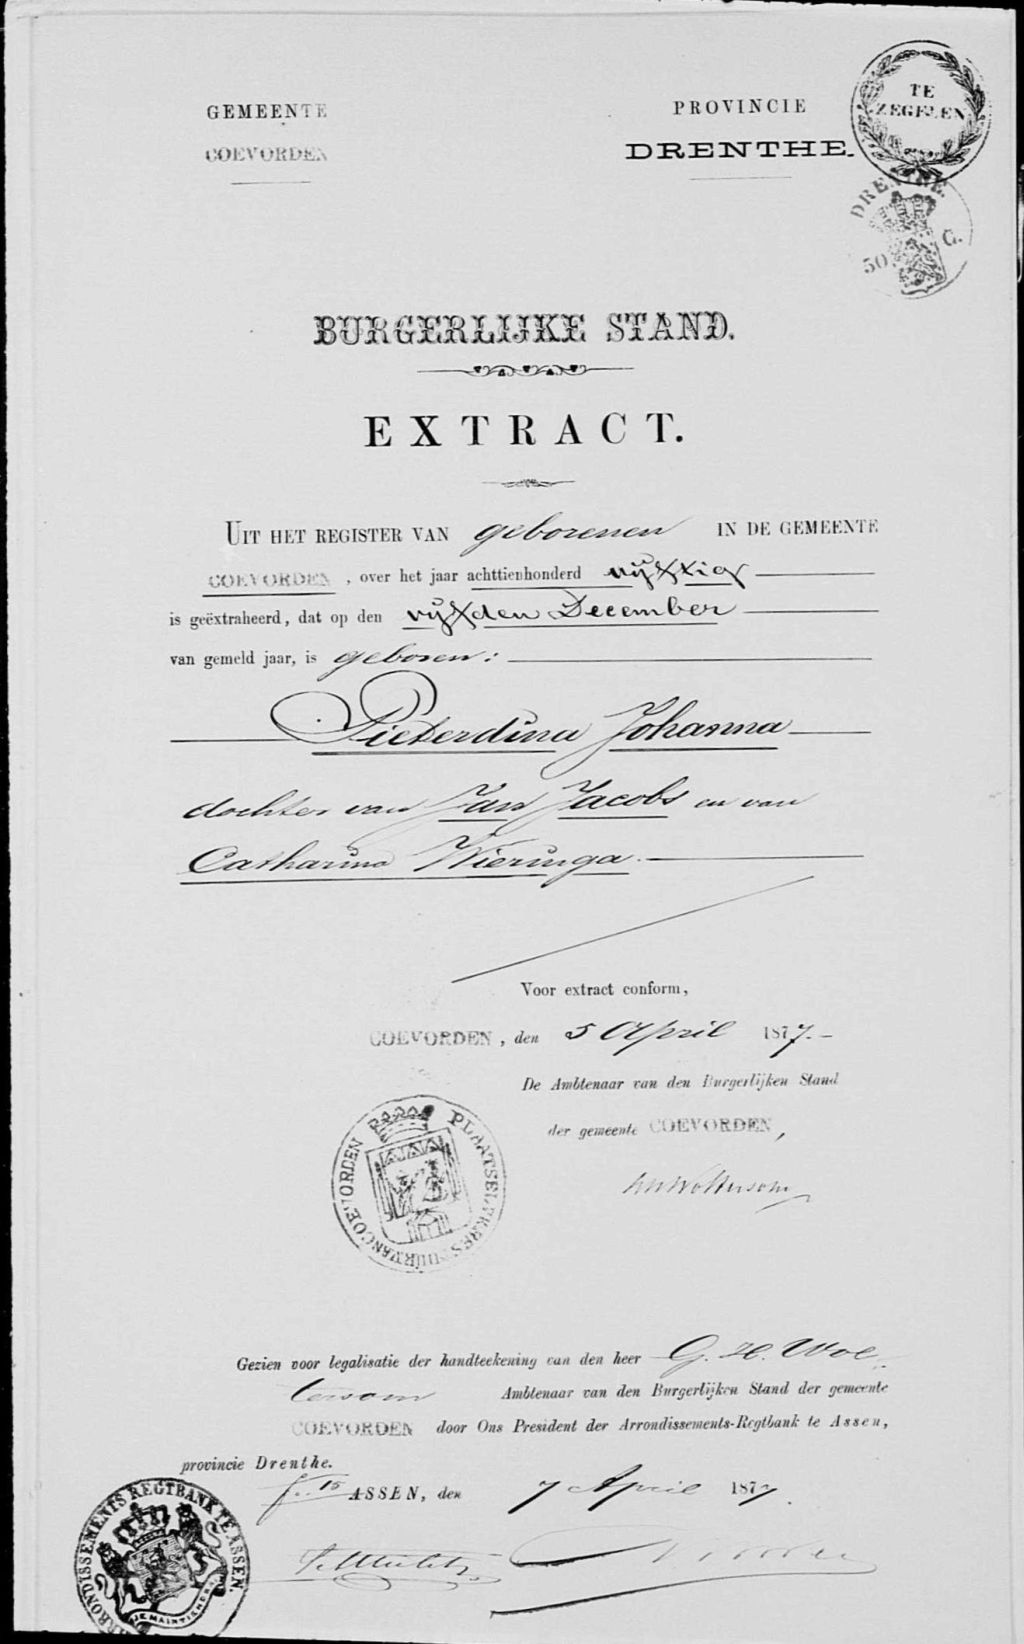 GEMEENTE
COEVORDEN
PROVINCIE
DRENTHE.
TE
ZEGELEN
DRENTHE.
50 C.
BURGERLIJKE STAND.
EXTRACT.
UIT HET REGISTER VAN geborenen IN DE GEMEENTE
COEVORDEN, over het jaar achttienhonderd vijftig
is geëxtraheerd, dat op den vijfden December
van gemeld jaar, is geboren:
Pieterdina Johanna
dochter van Jan Jacobs en van
Catharina Wieringa.
Voor extract conform,
COEVORDEN, den 5 April 1877.
De Ambtenaar van den Burgerlijken Stand
der gemeente COEVORDEN,
Woltersom
PLAATSELYK BESTUUR VAN COEVORDEN
Gezien voor legalisatie der handteekening van den heer G. H. Wol-
tersom Ambtenaar van den Burgerlijken Stand der gemeente
COEVORDEN door Ons President der Arrondissements-Regtbank te Assen,
provincie Drenthe.
ASSEN, den 7 April 1877.
ARRONDISSEMENTS REGTBANK TE ASSEN.
JE MAINTIENDRAI